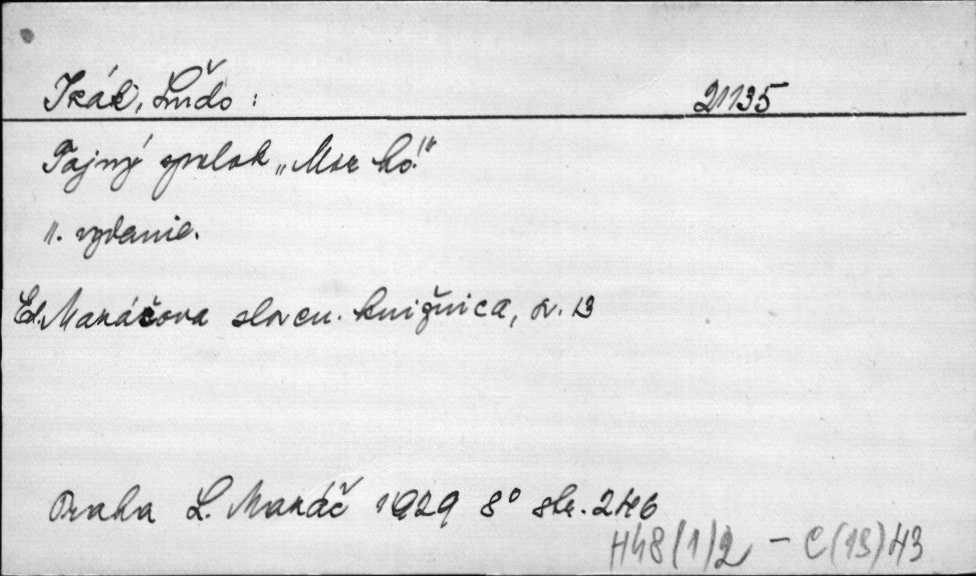 Izák, Ľudo : 21135
Tajný spolok „Mor ho!"
1. vydanie.
Ed. Manáčova sloven. knižnica, sv. 13
Praha L. Manáč 1929 8° str. 246
H48(1)2 - C(13)43